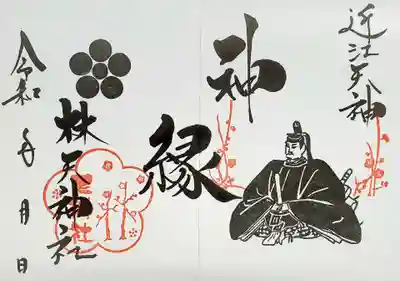 近江天神
神
縁
林天神社
令和 年 月 日